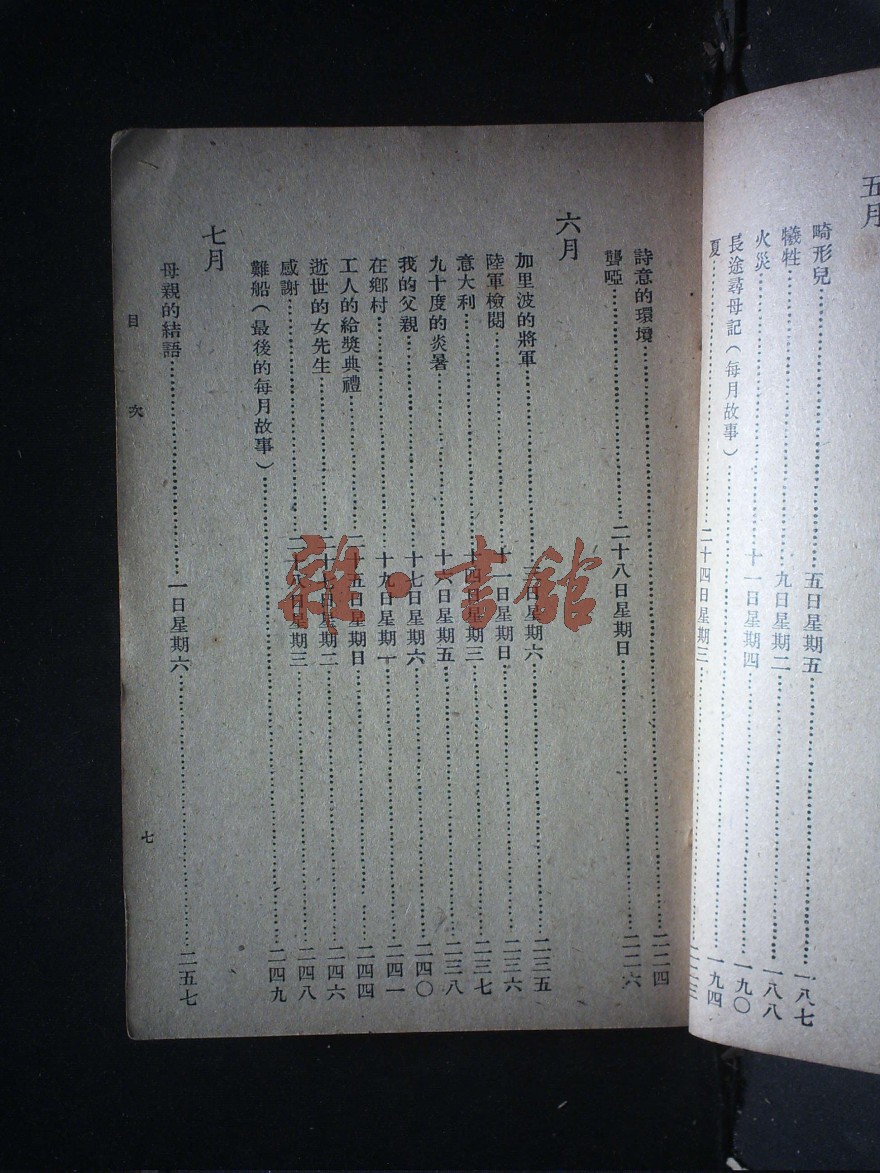 五月
畸形兒 五日星期五 一八七
犧牲 九日星期二 一八八
火災 十一日星期四 一九〇
長途尋母記(每月故事) 一九四
夏 二十四日星期三
詩意的環境 二二四
聾啞 二十八日星期日 二二六
六月
加里波的將軍 三日星期六 二三五
陸軍檢閱 十一日星期日 二三六
意大利 十四日星期三 二三七
九十度的炎暑 十六日星期五 二三八
我的父親 十七日星期六 二四〇
在鄉村 十九日星期一 二四一
工人的給獎典禮 二十五日星期日 二四四
逝世的女先生 二十七日星期二 二四六
感謝 二十八日星期三 二四八
難船(最後的每月故事) 二四九
七月
母親的結語 一日星期六 二五七
目次
七
雜·書館